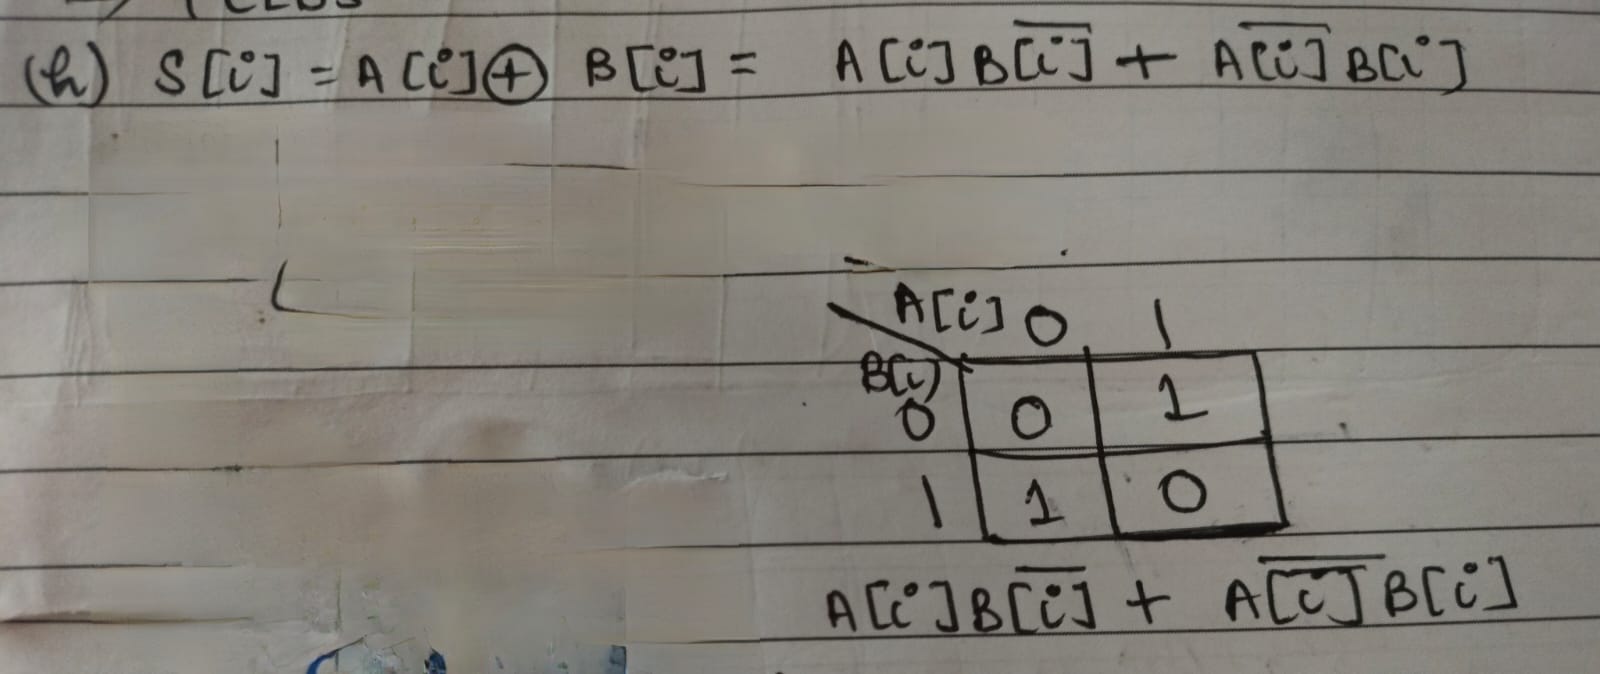 (h) S[i] = A[i] ⊕ B[i] = A[i] B[i̅] + A[i̅] B[i]
A[i] 0 1
B[i]
0 0 1
1 1 0
A[i] B[i̅] + A[i̅] B[i]